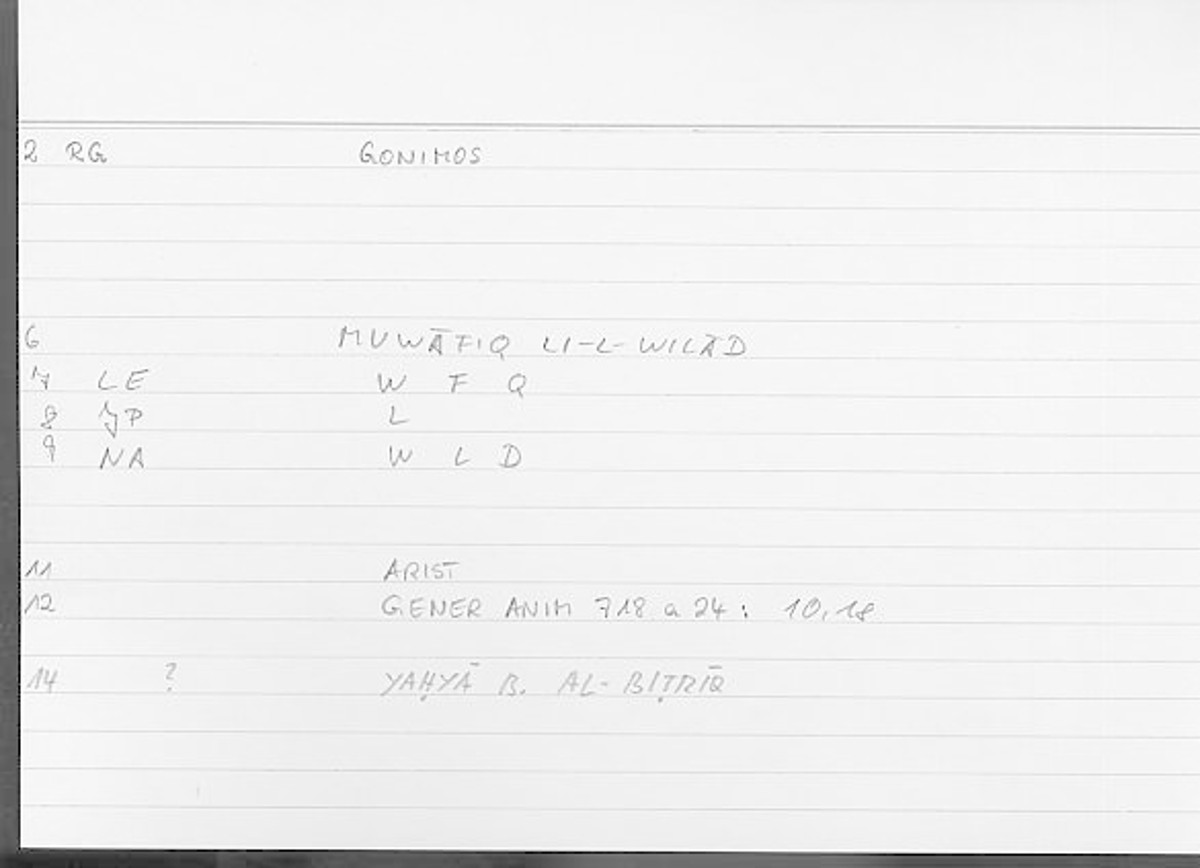 2 RG GONIMOS
6 MUWĀFIQ LI-L-WILĀD
7 LE W F Q
8 JP L
9 NA W L D
11 ARIST
12 GENER ANIM 718 a 24 : 10,18
14 ? YAḤYĀ B. AL-BIṬRĪQ